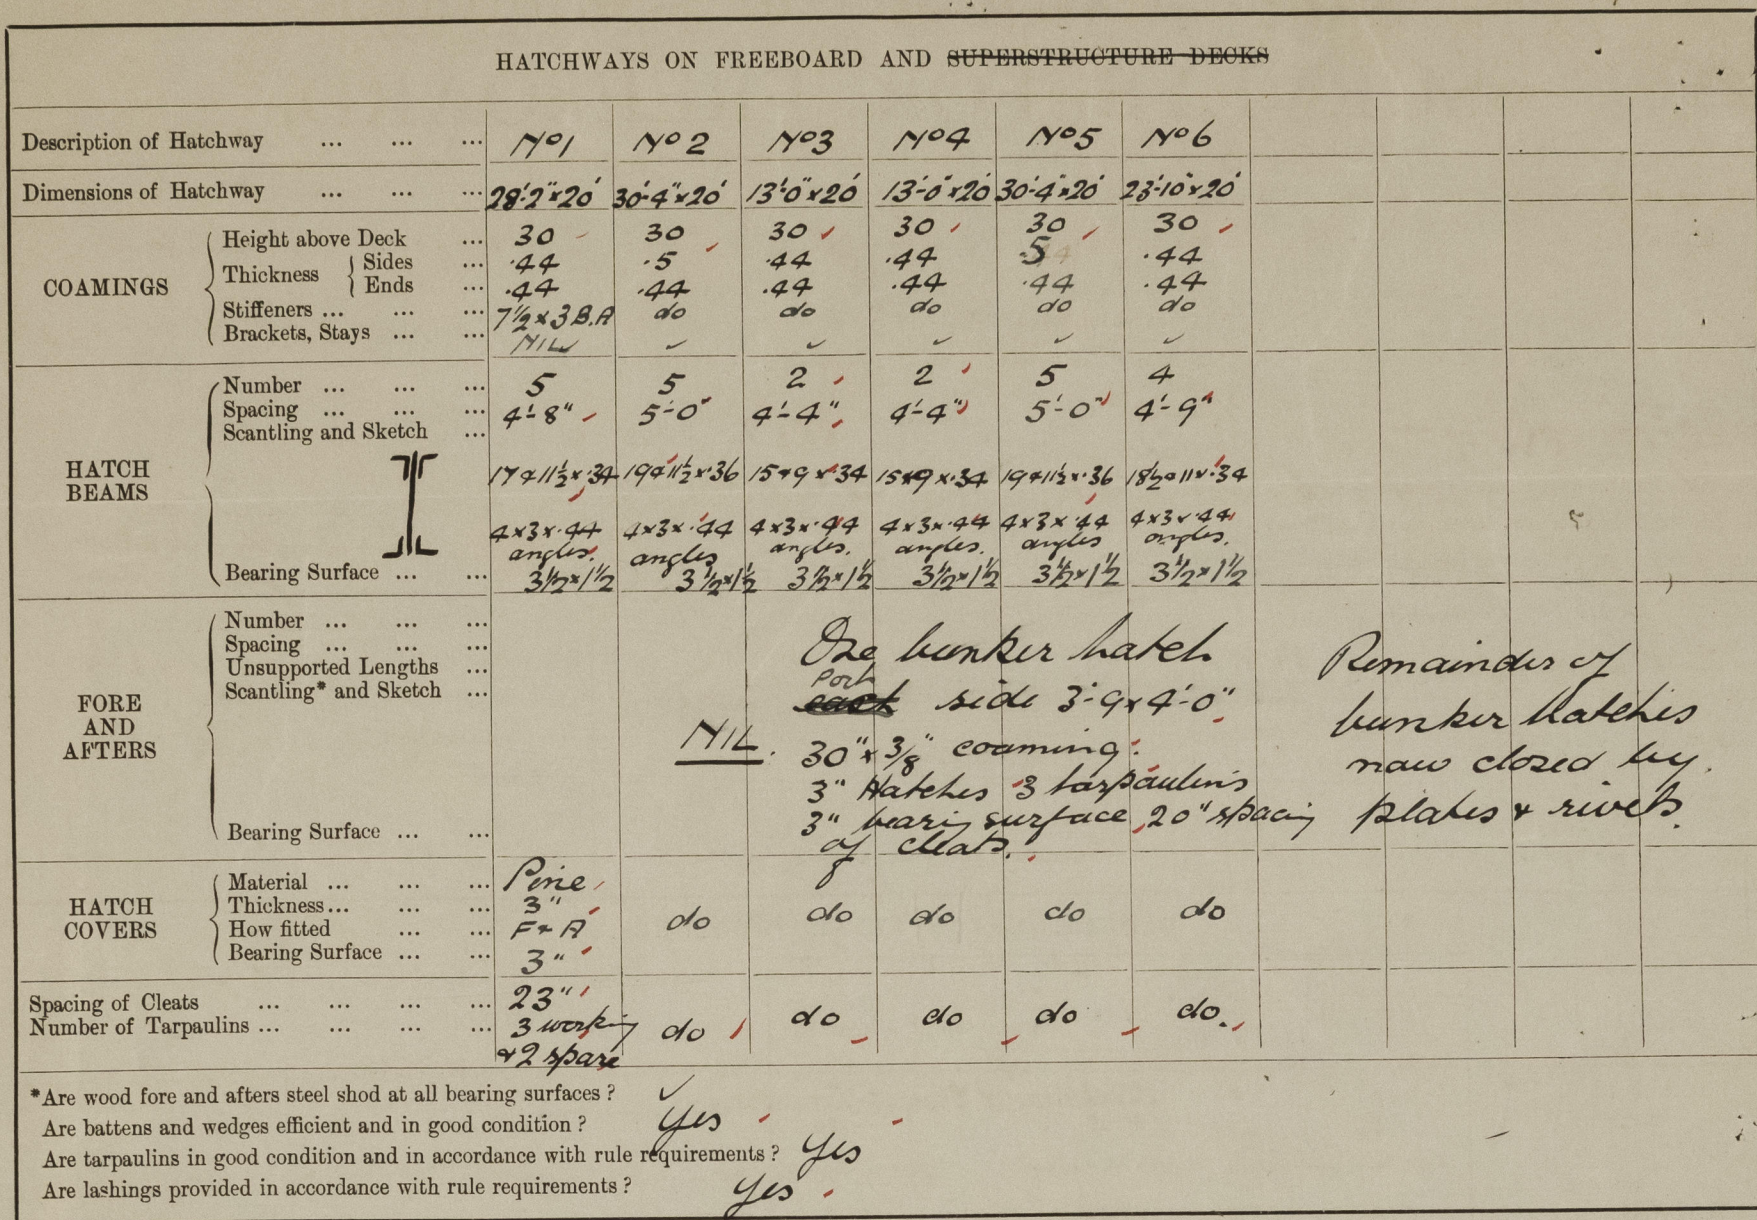 HATCHWAYS ON FREEBOARD AND SUPERSTRUCTURE DECKS
Description of Hatchway ... ... ... No 1 No 2 No 3 No 4 No 5 No 6
Dimensions of Hatchway ... ... ... 28'-2"x20' 30'-4"x20' 13'-0"x20' 13'-0"x20' 30'-4"x20' 23'-10"x20'
COAMINGS
Height above Deck ... 30 30 30 30 30 30
Thickness Sides ... .44 .5 .44 .44 .5 .44
Ends ... .44 .44 .44 .44 .44 .44
Stiffeners ... ... ... 7 1/2 x 3 B.A do do do do do
Brackets, Stays ... ... NIL ✓ ✓ ✓ ✓ ✓
HATCH BEAMS
Number ... ... ... 5 5 2 2 5 4
Spacing ... ... ... 4'-8" 5'-0" 4'-4" 4'-4" 5'-0" 4'-9"
Scantling and Sketch ...
17 & 11 1/2 x .34 19 & 11 1/2 x .36 15 & 9 x .34 15 & 9 x .34 19 & 11 1/2 x .36 18 1/2 & 11 x .34
4x3x.44 4x3x.44 4x3x.44 4x3x.44 4x3x.44 4x3x.44
angles. angles angles. angles. angles angles.
Bearing Surface ... ... 3 1/2 x 1 1/2 3 1/2 x 1 1/2 3 1/2 x 1 1/2 3 1/2 x 1 1/2 3 1/2 x 1 1/2 3 1/2 x 1 1/2
FORE AND AFTERS
Number ... ... ...
Spacing ... ... ...
Unsupported Lengths ...
Scantling* and Sketch ...
Bearing Surface ... ...
NIL.
One bunker hatch
Port
each side 3'-9x4'-0"
30" x 3/8" coaming.
3" Hatches 3 tarpaulins
3" bearing surface, 20" spacing
of cleats.
Remainder of
bunker hatches
now closed by
plates & rivets.
HATCH COVERS
Material ... ... ... Pine
Thickness ... ... ... 3"
How fitted ... ... F & A do do do do do
Bearing Surface ... ... 3"
Spacing of Cleats ... ... ... ... 23"
Number of Tarpaulins ... ... ... ... 3 working do do do do do.
& 2 spare
*Are wood fore and afters steel shod at all bearing surfaces? ✓
Are battens and wedges efficient and in good condition? Yes
Are tarpaulins in good condition and in accordance with rule requirements? Yes
Are lashings provided in accordance with rule requirements? Yes